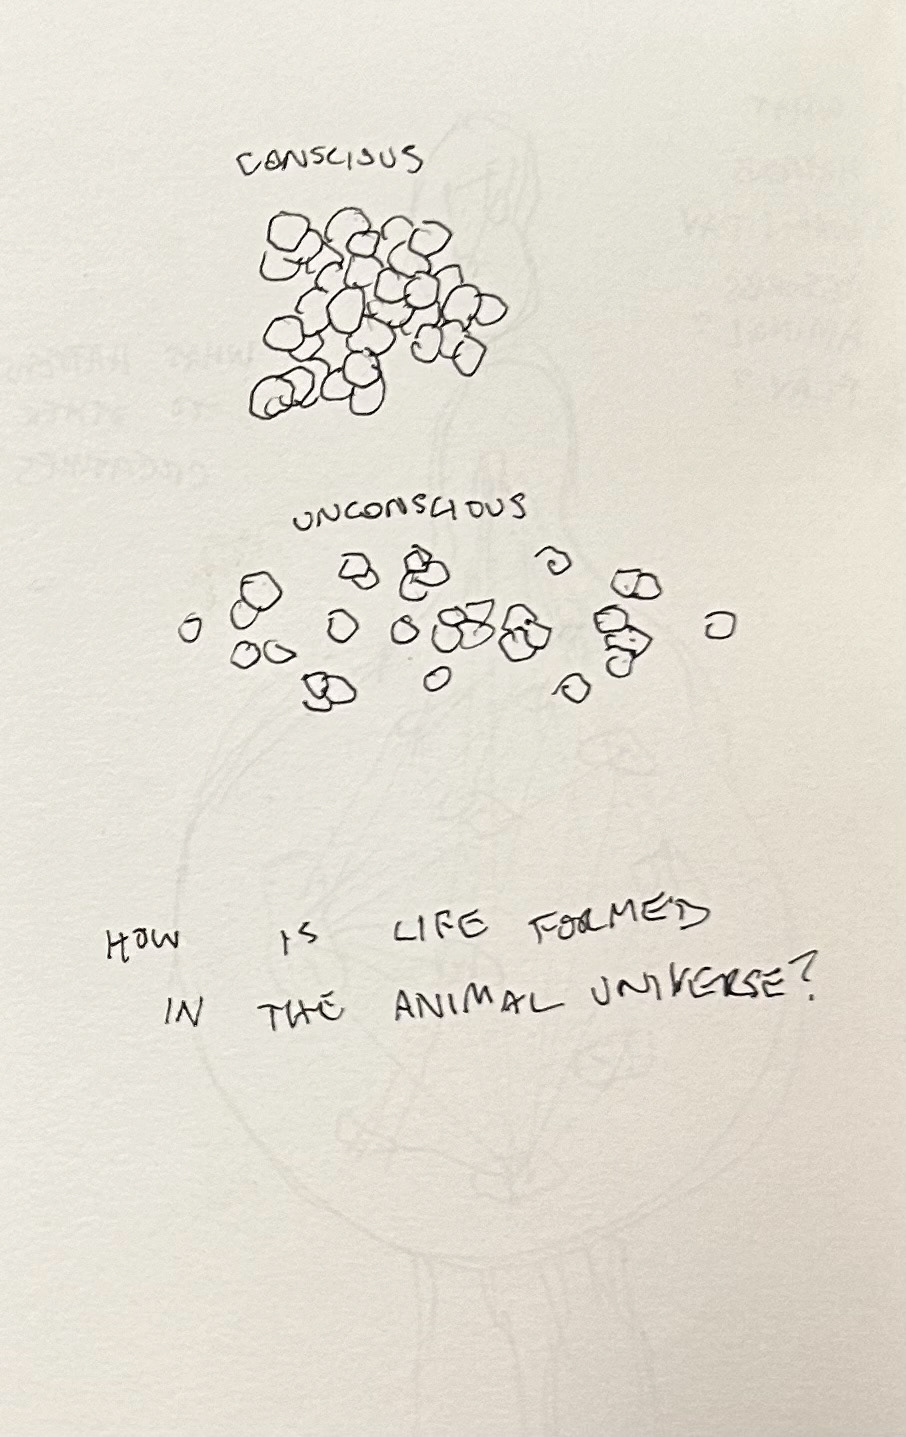 CONSCIOUS
UNCONSCIOUS
HOW IS LIFE FORMED
IN THE ANIMAL UNIVERSE?